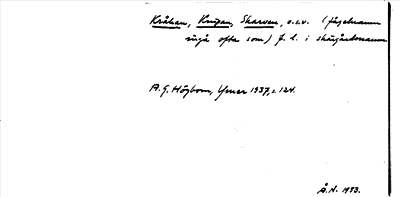 Kråkan, Knipan, Skarven, o.s.v. (fågelnamn
ingå ofta som) f. l. i skärgårdsnamn
A. G. Högbom, Ymer 1937, s. 124.
Å. N. 1973.